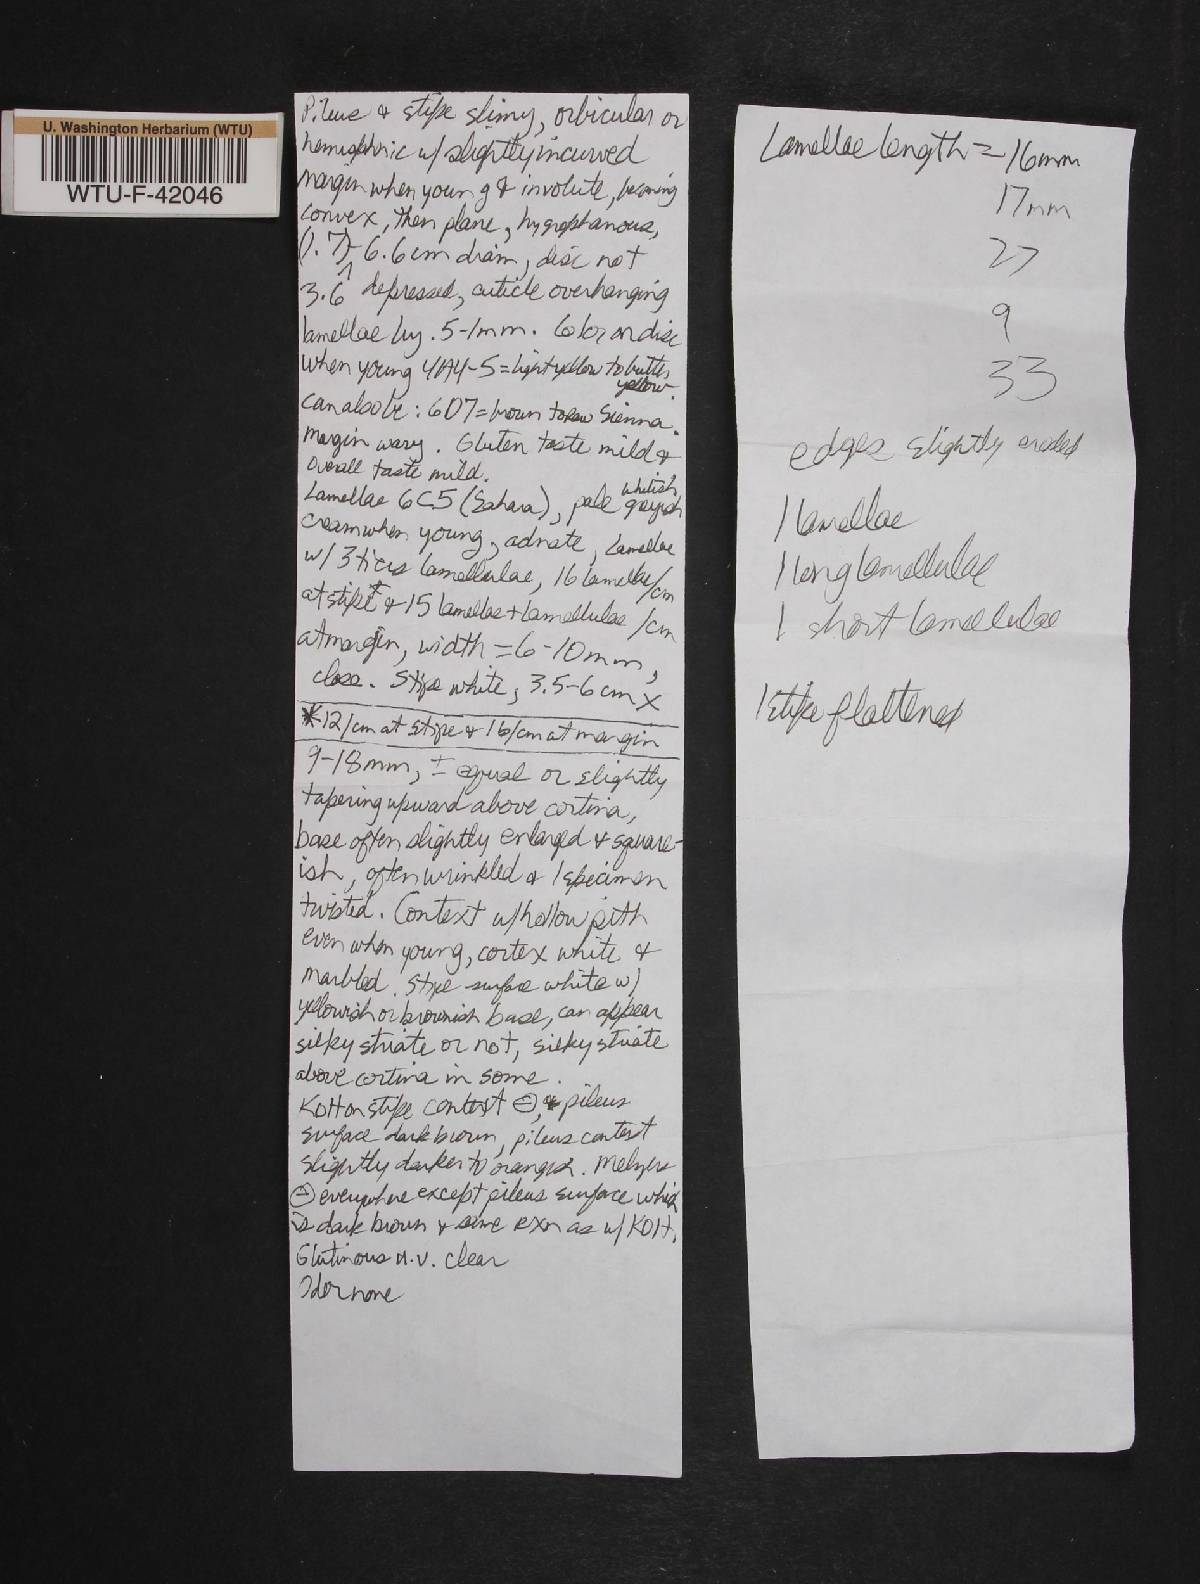 U. Washington Herbarium (WTU)
WTU-F-42046
Pileus & stipe slimy, orbicular or
hemispheric w/ slightly incurved
margin when young & involute, becoming
convex, then plane, hygrophanous,
(1.7)- 6.6cm diam, disc not
3.6 ^ depressed, cuticle overhanging
lamellae by .5-1mm. Color on disc
when young 4A4-5 = light yellow to butter
yellow.
can also be: 6D7 = brown to raw Sienna.
Margin wavy. Gluten taste mild &
overall taste mild.
whitish,
Lamellae 6C5 (Sahara), pale greyish
cream when young, adnate, Lamellae
w/ 3 tiers lamellulae, 16 lamellae/cm
at stipe* & 15 lamellae + lamellulae /cm
at margin, width = 6-10mm,
close. Stipe white, 3.5-6cm x
*12/cm at stipe & 16/cm at margin
9-18mm, ± equal or slightly
tapering upward above cortina,
base often slightly enlarged & square-
ish, often wrinkled & 1 specimen
twisted. Context w/ hollow pith
even when young, cortex white &
marbled. Stipe surface white w/
yellowish or brownish base, can appear
silky striate or not, silky striate
above cortina in some.
KOH on stipe context ⊖, & pileus
surface dark brown, pileus context
slightly darker to orangish. Melzers
⊖ everywhere except pileus surface which
is dark brown & same rxn as w/ KOH.
Glutinous u.v. clear
Odor none
Lamellae length = 16mm
17mm
27
9
33
edges slightly eroded
1 lamellae
1 long lamellulae
1 short lamellulae
1 stipe flattened